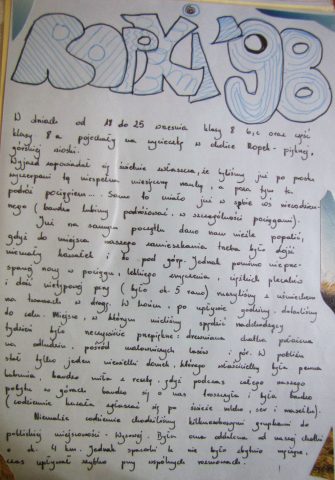 ROPKI '98
W dniach od 18 do 25 września klasy 8 b, c oraz część
klasy 8 a pojechały na wycieczkę w okolice Ropek - pięknej,
górskiej wioski.
Wyjazd zapowiadał się świetnie, zwłaszcza, że byliśmy już po prostu
wyczerpani tą niespełna miesięczną nauką, a poza tym ta
podróż pociągiem... Samo to miało już w sobie coś
nego (bardzo lubimy podróżować, w szczególności pociągami).
Już na samym początku dano nam nieźle popalić,
gdyż do miejsca naszego zamieszkania trzeba było dojść
niemały kawałek i to pod górę. Jednak pomimo nieprze-
spanej nocy w pociągu, lekkiego zmęczenia, ciężkich plecaków
i dość nietypowej pory (było ok. 5 rano) ruszyliśmy z uśmiechem
na twarzach w drogę. W końcu, po upływie godziny, dotarliśmy
do celu. Miejsce, w którym mieliśmy spędzić nadchodzący
tydzień było niezwykle przepiękne: drewniana chatka położona
na odludziu, pośród malowniczych lasów i gór. W pobliżu
stał tylko jeden niewielki domek, którego właścicielką była pewna
babunia, bardzo miła z resztą, gdyż podczas całego naszego
pobytu w górach bardzo się o nas troszczyła i była bardzo
(codziennie kazała zgłaszać się po świeże mleko, ser i masełko).
Niemalże codziennie chodziliśmy kilkuosobowymi grupkami do
pobliskiej miejscowości - Wysowej. Była ona oddalona od naszej chatki
o ok. 4 km. Jednak spacerki te nie były zbytnio męczące,
czas upływał szybko przy wspólnych rozmowach.